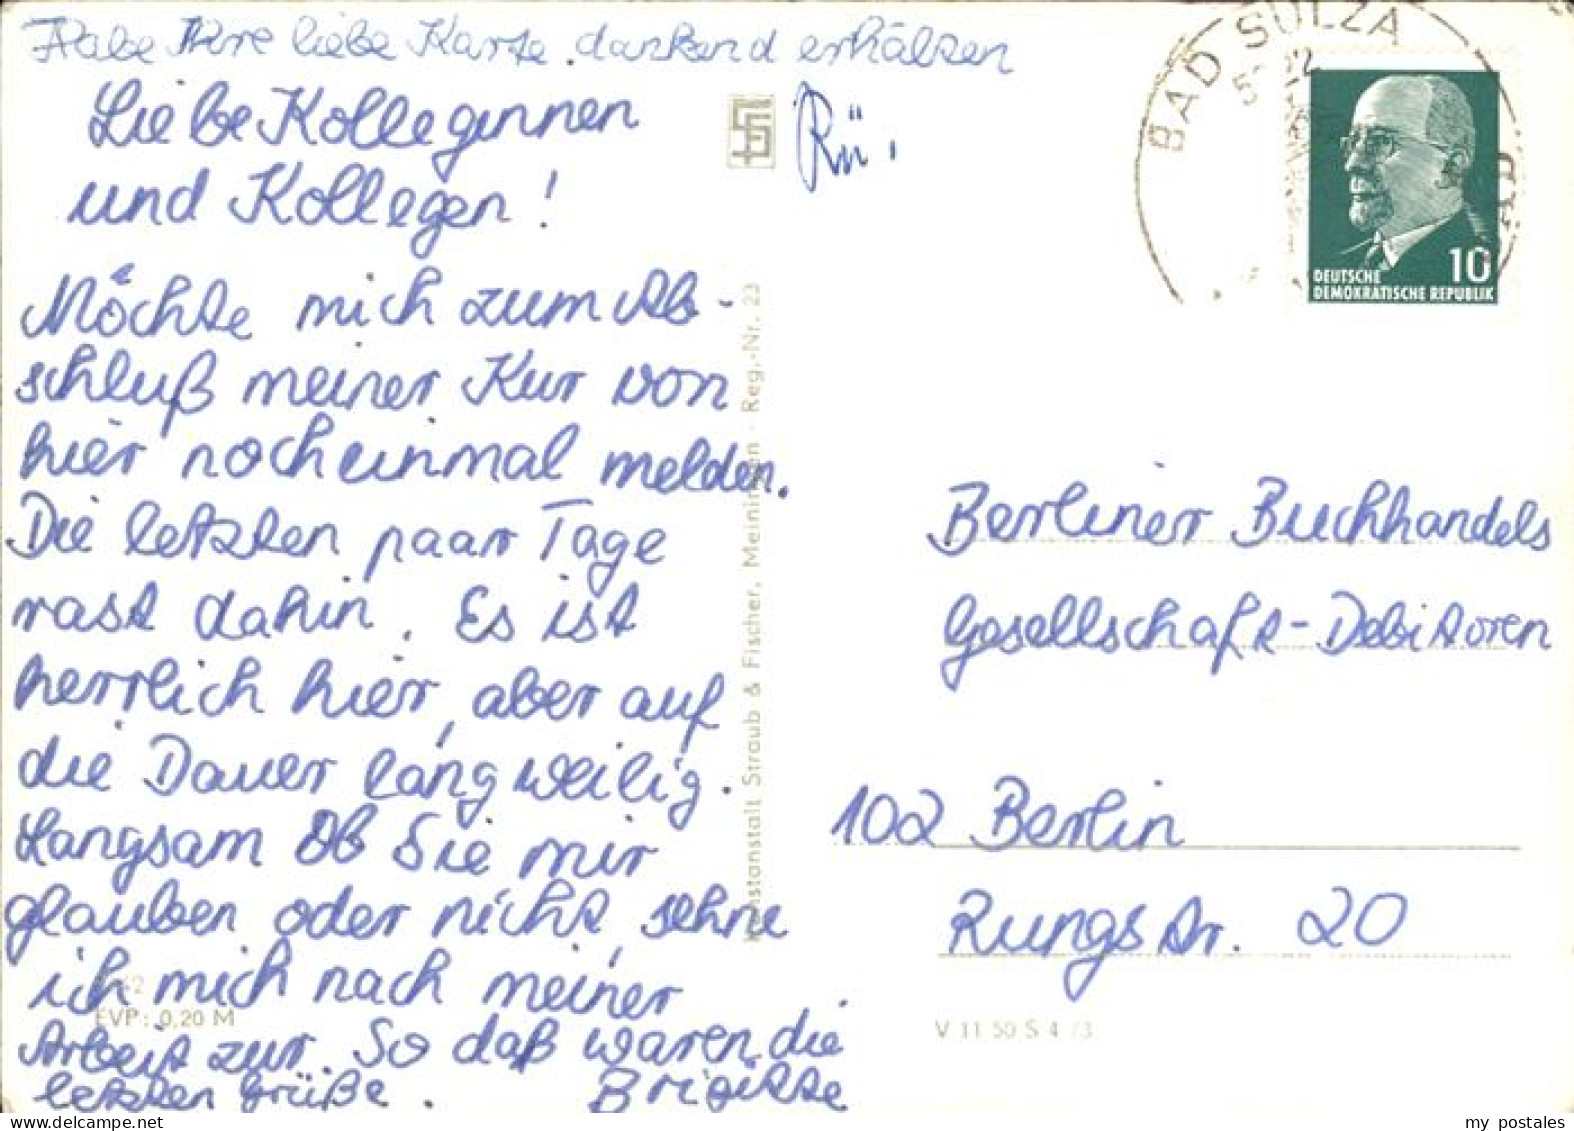 Habe Ihre liebe Karte dankend erhalten
Liebe Kolleginnen
und Kollegen!
Möchte mich zum Ab-
schluß meiner Kur von
hier nocheinmal melden.
Die letzten paar Tage
rast dahin. Es ist
herrlich hier, aber auf
die Dauer langweilig.
Langsam Ob Sie mir
glauben oder nicht, sehne
ich mich nach meiner
Arbeit zur. So daß waren die
letzten Grüße. Brigitte
Rü.
EVP: 0,20 M
Kunstanstalt Straub & Fischer, Meiningen · Reg.-Nr. 23
BAD SULZA
10
DEUTSCHE
DEMOKRATISCHE REPUBLIK
Berliner Buchhandels
Gesellschaft-Debitoren
102 Berlin
Rungstr. 20
V 11 50 S 4 73
my postales